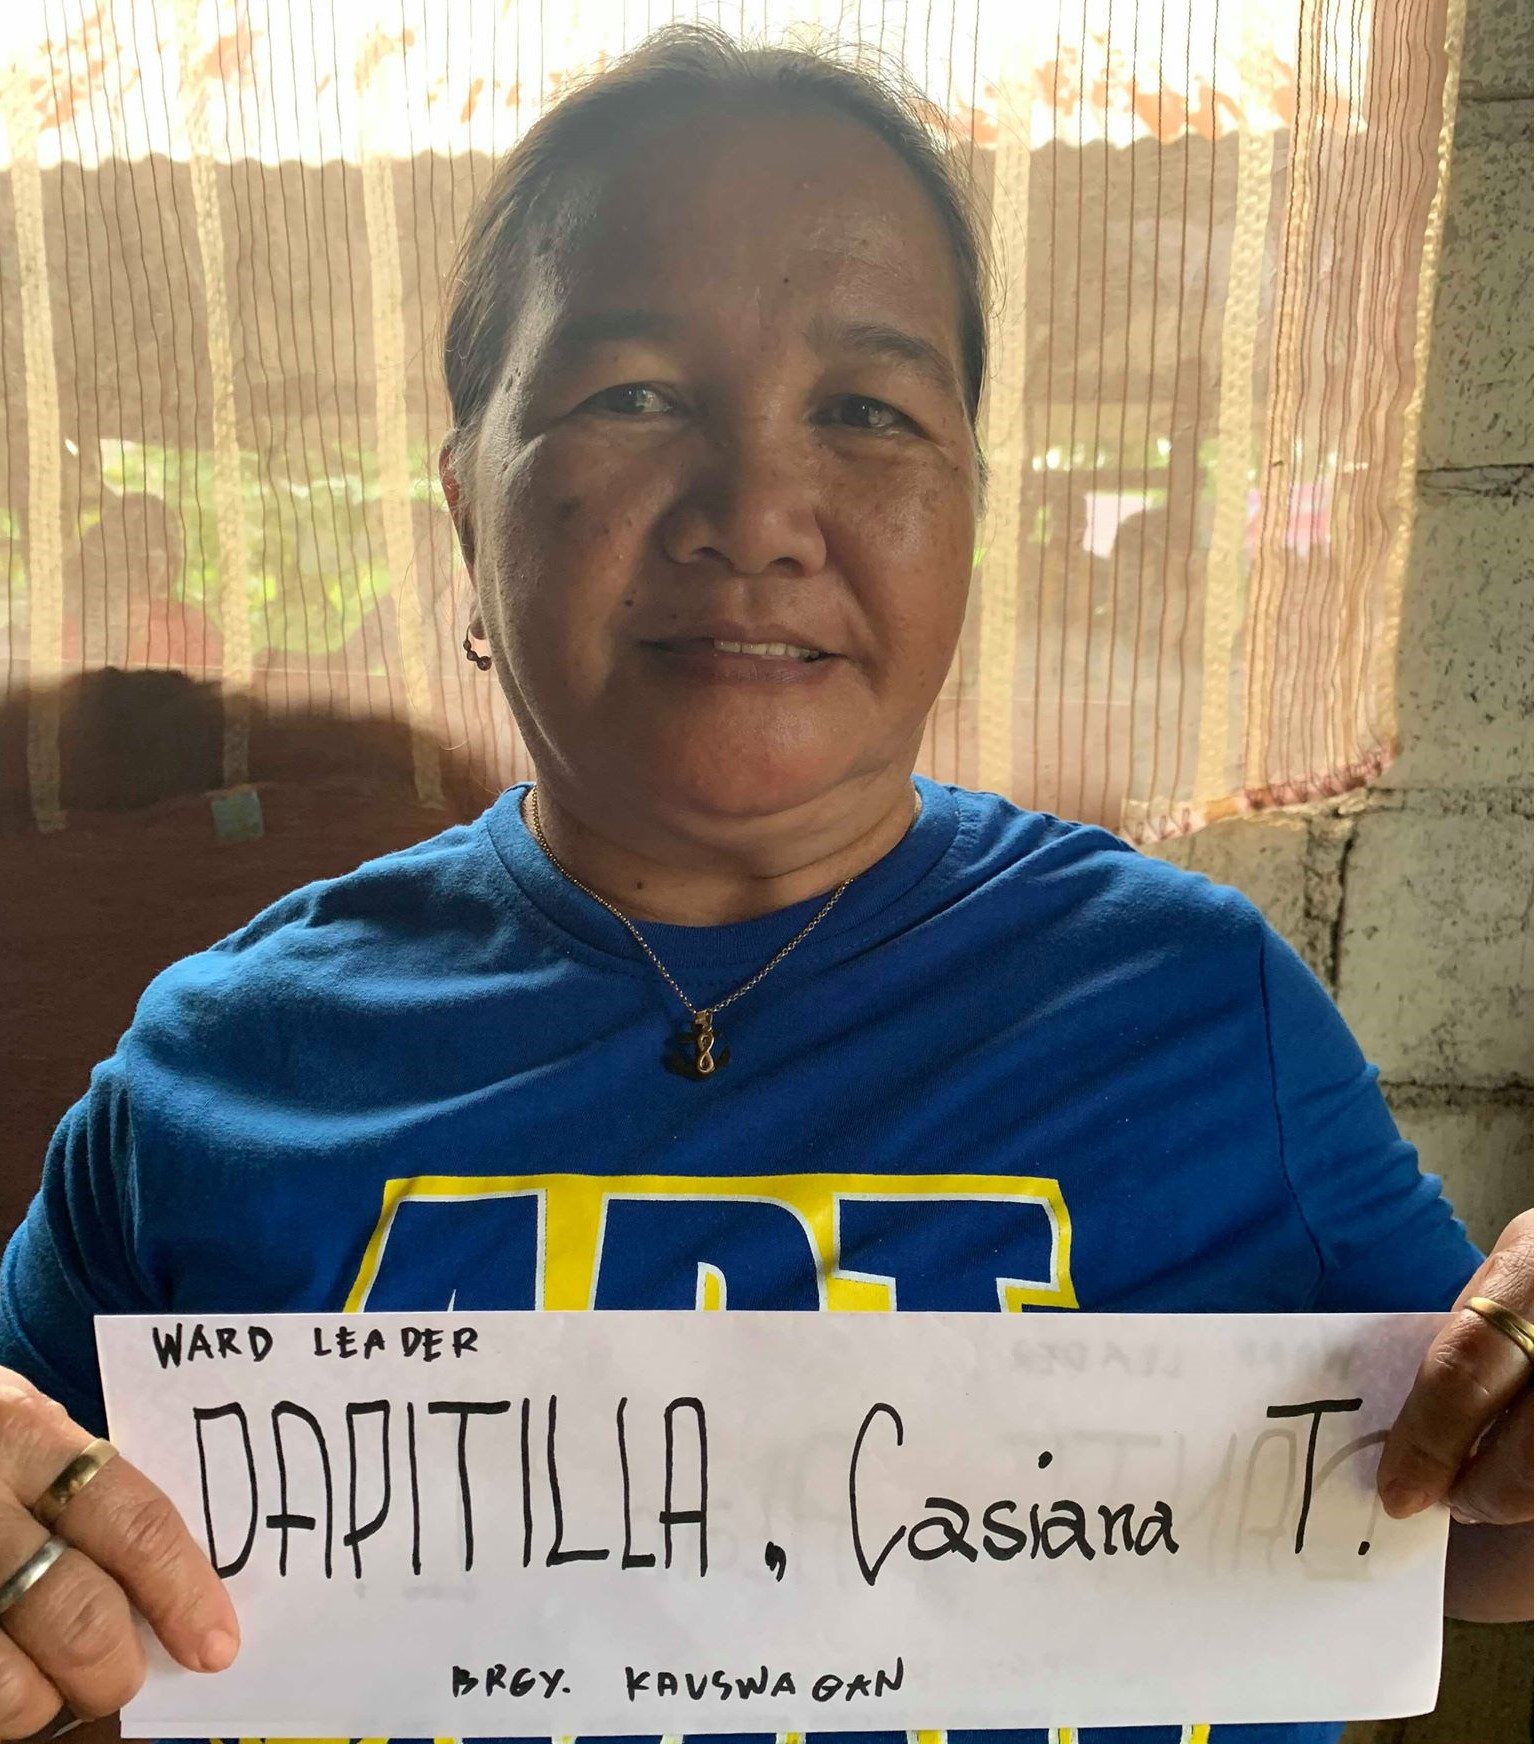 ART
WARD LEADER
DAPITILLA, Casiana T.
BRGY. KAUSWAGAN